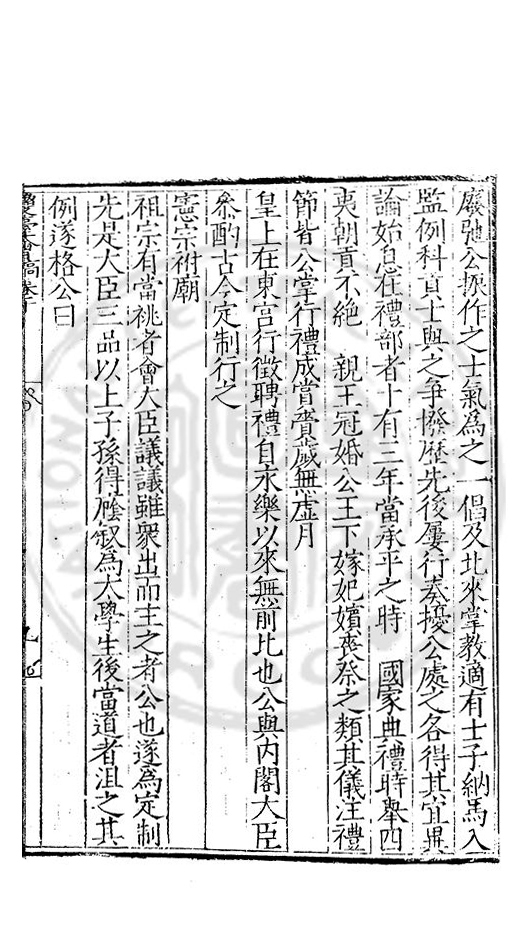 廢弛公振作之士氣為之一倡及北來掌教適有士子納馬入
監例科貢士與之爭撥歷先後屢行奏擾公處之各得其宜異
論始息在禮部者十有三年當承平之時 國家典禮時舉四
夷朝貢不絕 親王冠婚公主下嫁妃嬪喪祭之類其儀注禮
節皆公掌行禮成賞賚歲無虛月
皇上在東宮行徵聘禮自永樂以來無前比也公與內閣大臣
叅酌古今定制行之
憲宗祔廟
祖宗有當祧者會大臣議議雖衆出而主之者公也遂為定制
先是大臣三品以上子孫得廕敘為太學生後當道者沮之其
例遂格公曰